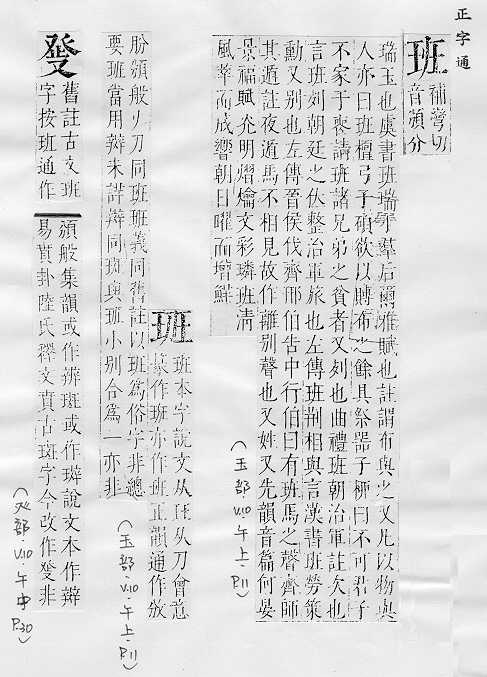 正字通
班 補灣切
音頒分
瑞玉也虞書班瑞于羣后爾雅賦也註謂布與之又凡以物與
人亦曰班檀弓子碩欲以賻布之餘具祭器子柳曰不可君子
不家于喪請班諸兄弟之貧者又列也曲禮班朝治軍註次也
言班列朝廷之位整治軍旅也左傳班荆相與言漢書班勞策
勳又別也左傳晉侯伐齊邢伯告中行伯曰有班馬之聲齊師
其遁註夜遁馬不相見故作離別聲也又姓又先韻音篇何晏
景福賦光明熠爚文彩璘班淸
風萃而成響朝日曜而增鮮
(玉部·V.10·午上·P.11)
班 班本字說文从玨从刀會意
篆作班亦作班正韻通作攽
肦頒般从刀同班班義同舊註以班為俗字非總
要班當用辬未詳辬同斑與班小別合為一亦非
(玉部·V.10·午上·P.11)
舊註古文班
字按班通作
頒般集韻或作辨斑或作璘說文本作辬
易賁卦陸氏釋文賁古斑字今改作非
(癶部·V.10·午中·P.30)